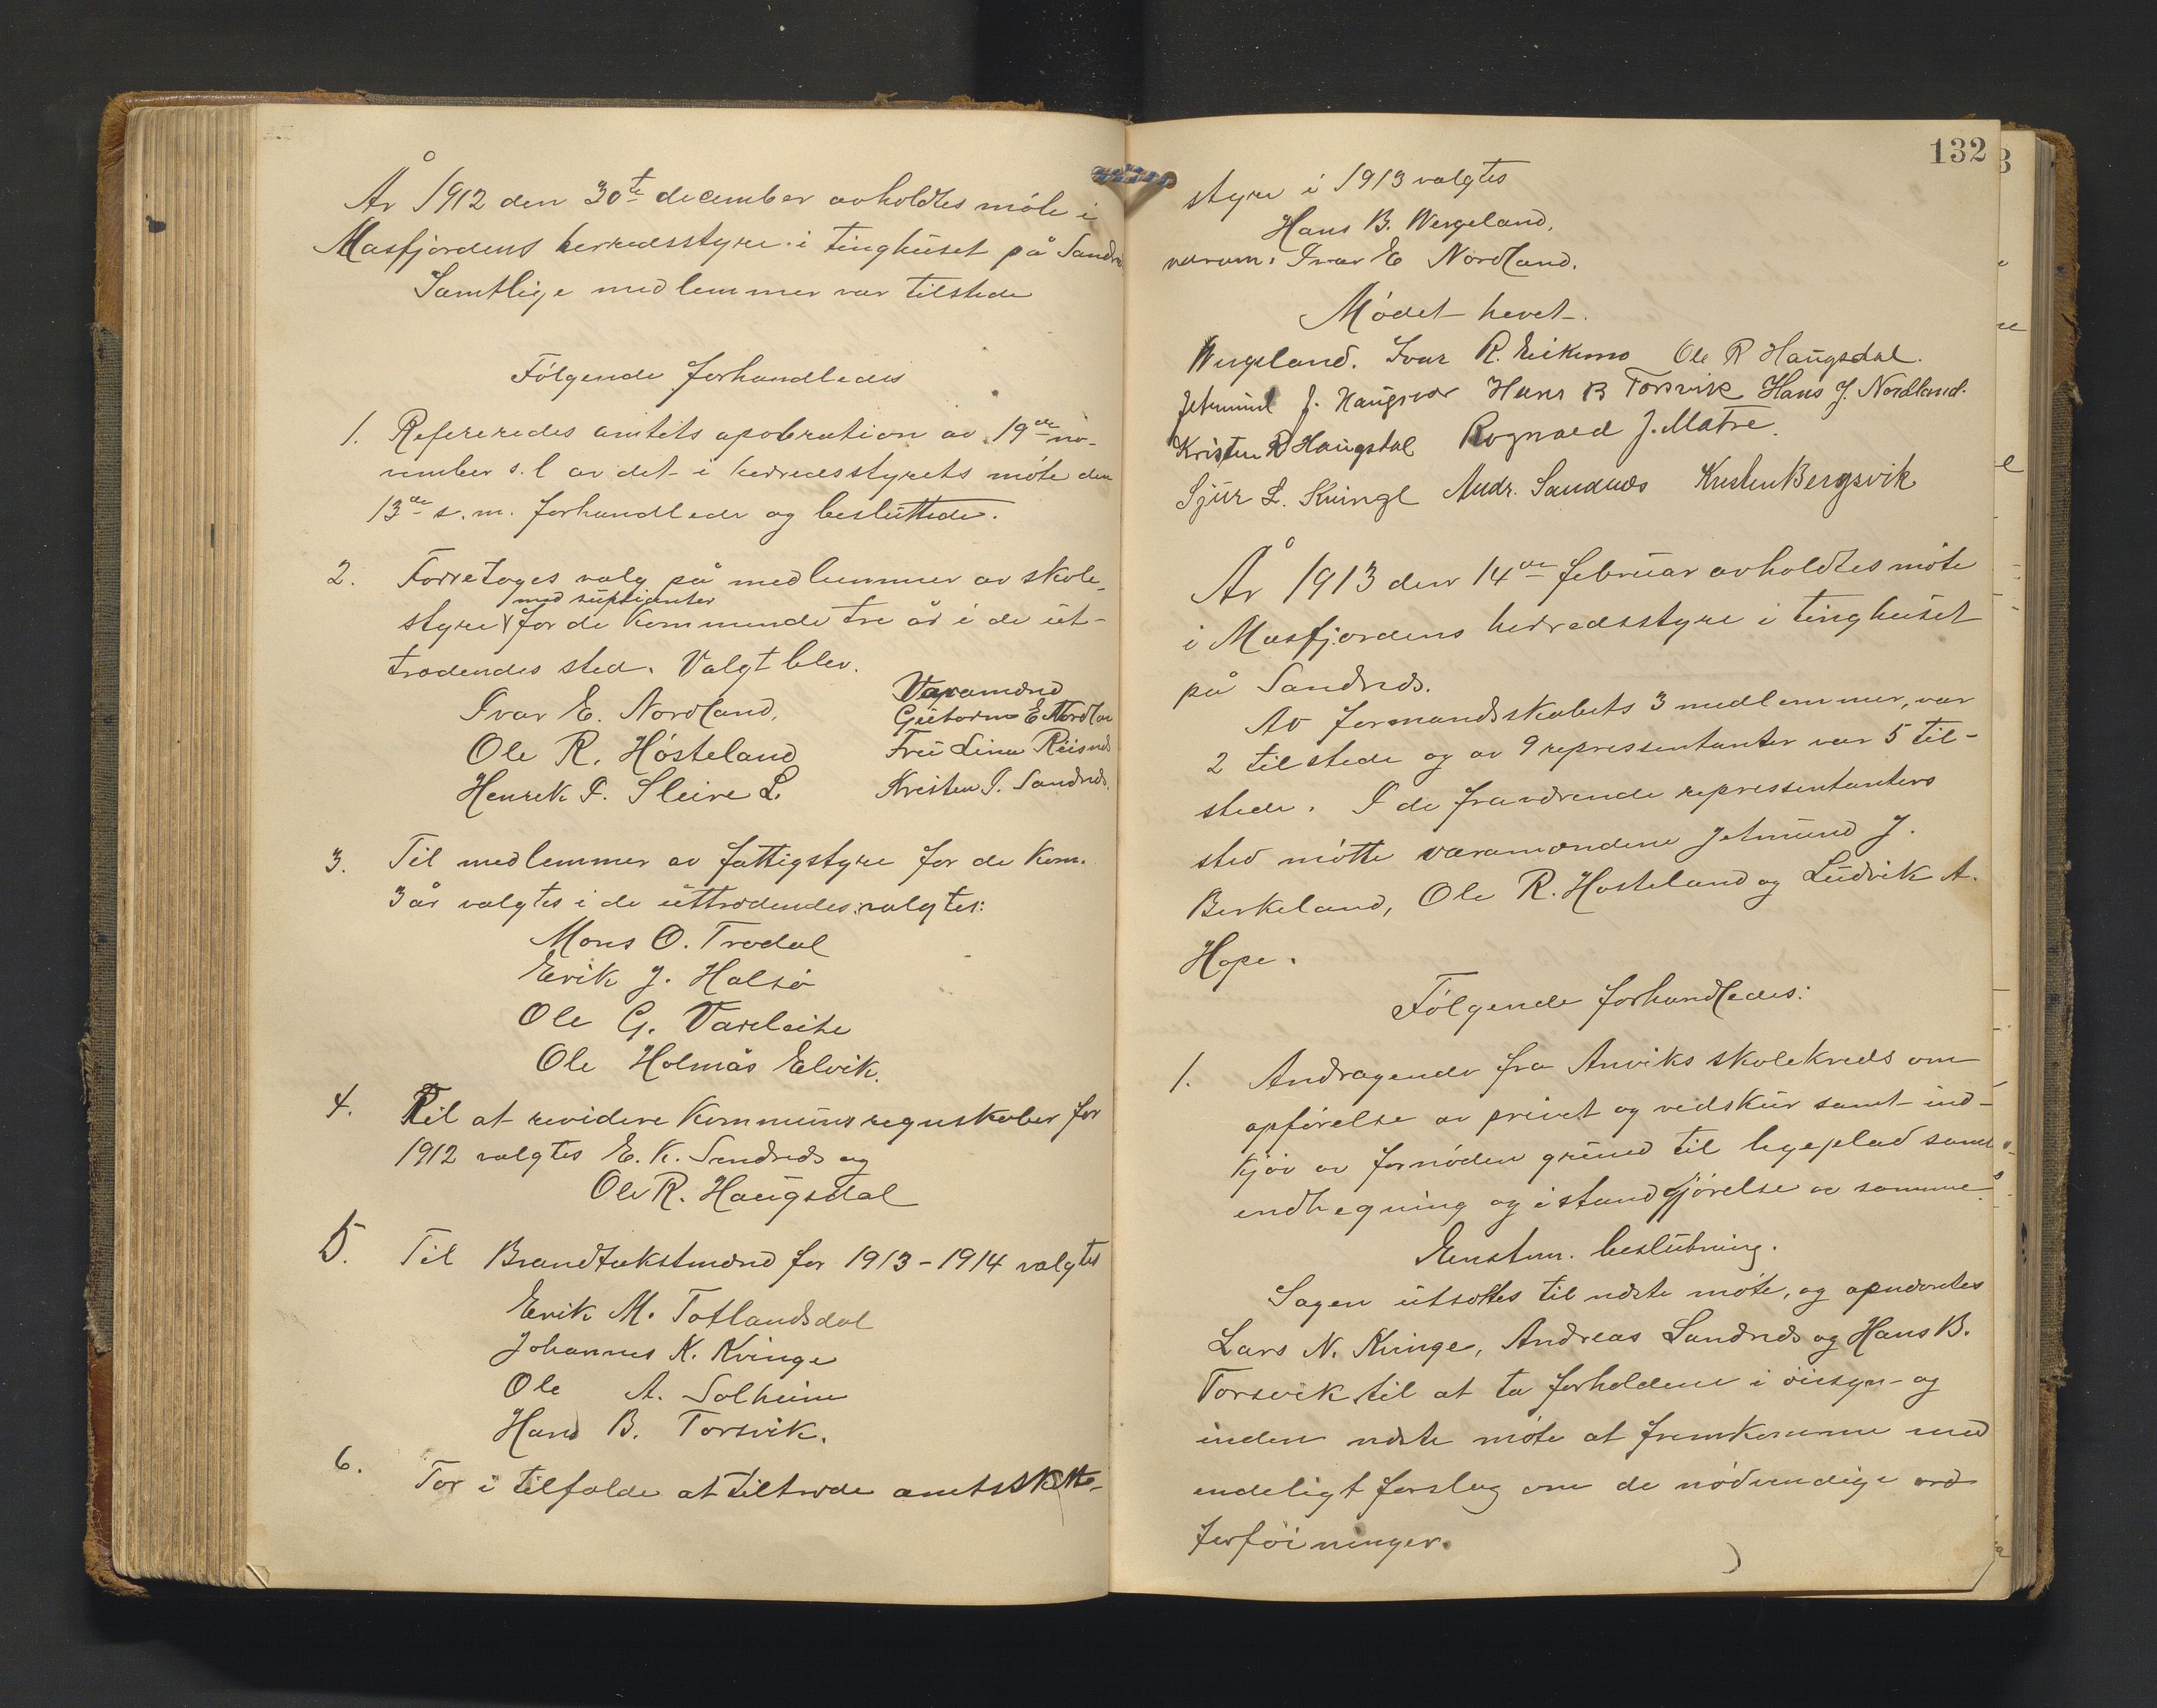 År 1912 den 30te december avholdtes møte i
Masfjordens herredsstyre i tinghuset på Sandnæs
Samtlige medlemmer var tilstede
Følgende forhandledes
1. Refereredes amtets apobration av 19de no-
vember s. l av det i herredsstyrets møte den
13de s. m. forhandlede og besluttede.
2. Forretoges valg på medlemmer av skole-
med suplianter
styre for de kommende tre år i de ut-
trædendes sted. Valgt blev.
Varamænd
Ivar E. Nordland, Guttorm E Nordlan
Ole R. Høsteland Fru Lina Riisnes
Henrik I. Sleire L. Kristen I. Sandnæs.
3. Til medlemmer av fattigstyre for de kom.
3 år valgtes i de uttrædendes valgtes:
Mons O. Trædal
Erik J. Halsø
Ole G. Vareleite
Ole Holmås Elvik.
4. Til at revidere kommuneregnskaber for
1912 valgtes E. K. Sandnæs og
Ole R. Haugsdal
5. Til Brandtakstmænd for 1913-1914 valgtes
Erik M. Totlandsdal
Johannes K. Kvinge
Ole A. Solheim
Hans B. Torsvik.
6. For i tilfælde at tiltræde amtsskatte-
132
styre i 1913 valgtes
Hans B. Wergeland,
varam. Ivar E Nordland.
Mødet hevet.
Wergeland. Ivar R. Eikemo Ole R Haugsdal.
Jetmund J. Haugsvær Hans B Torsvik Hans J. Nordland.
Kristen R Haugsdal Rognald J. Matre.
Sjur L. Kvinge Andr. Sandnæs Kristen Bergsvik
År 1913 den 14de februar avholdtes møte
i Masfjordens herredsstyre i tinghuset
på Sandnæs.
Av formandskabets 3 medlemmer, var
2 tilstede og av 9 repressentanter var 5 til-
stede. I de fraværende repressentanters
sted møtte varamændene Jetmund J.
Birkeland, Ole R. Hosteland og Ludvik A.
Hope.
Følgende forhandledes:
1. Andragende fra Anviks skolekreds om
opførelse av privet og vedskur samt ind-
kjøp av fornøden grund til legeplads samt
indhegning og istandgjørelse av samme.
Enstem. beslutning.
Sagen utsættes til næste møte, og opnævntes
Lars N. Kvinge, Andreas Sandnæs og Hans B.
Torsvik til at ta forholdene i øiesyn og
inden næste møte at fremkomme med
endeligt forslag om de nødvendige ord-
forføininger.